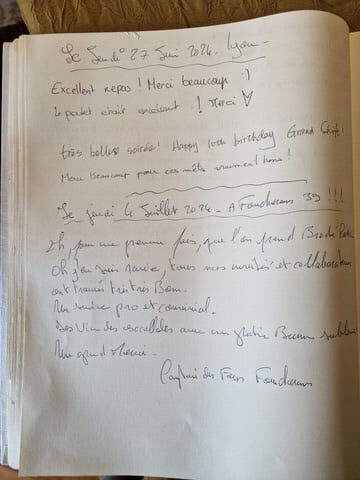 Le Jeudi 27 Juin 2024. Lyon
Excellent repas ! Merci beaucoup :)
le poulet était ! Merci
très belle soirée ! Happy birthday Grand
Merci beaucoup pour ces mêts vraiment bons !
Le jeudi 4 Juillet 2024. A Foucherans 39 !!!
pour une première fois, que l'on prend
Oh j'en suis ravie, tous nos invités et collaborateurs
ont trouvé très très Bon.
Un service pro et convivial.
Des vins avec un gratin
Un grand
des Fours Foucherans